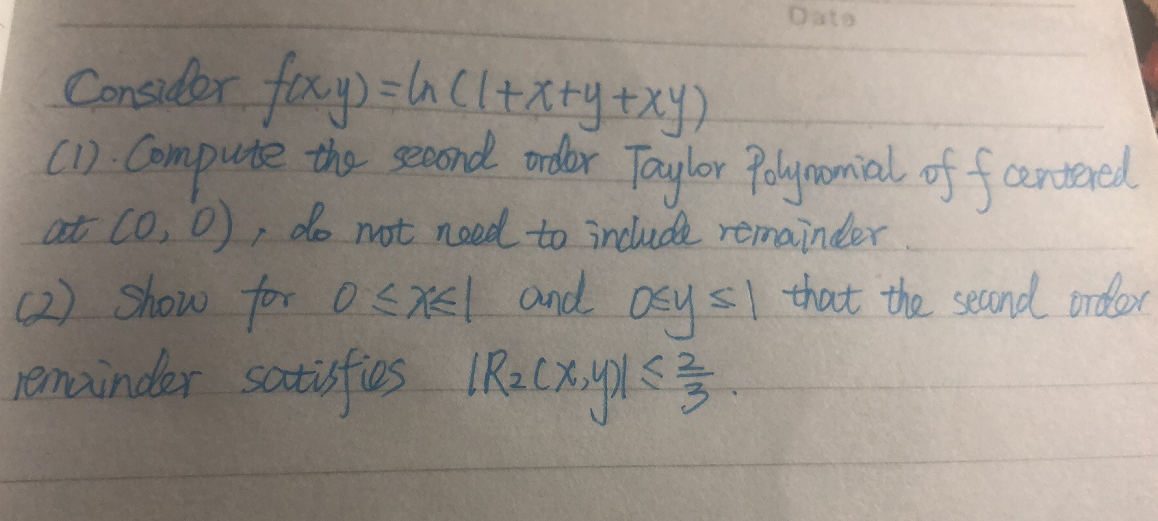 Date
Consider f(x,y)=ln(1+x+y+xy)
(1). Compute the second order Taylor Polynomial of f centered
at (0,0), do not need to include remainder.
(2) Show for 0≤x≤1 and 0≤y≤1 that the second order
remainder satisfies |R₂(x,y)|≤2/3.